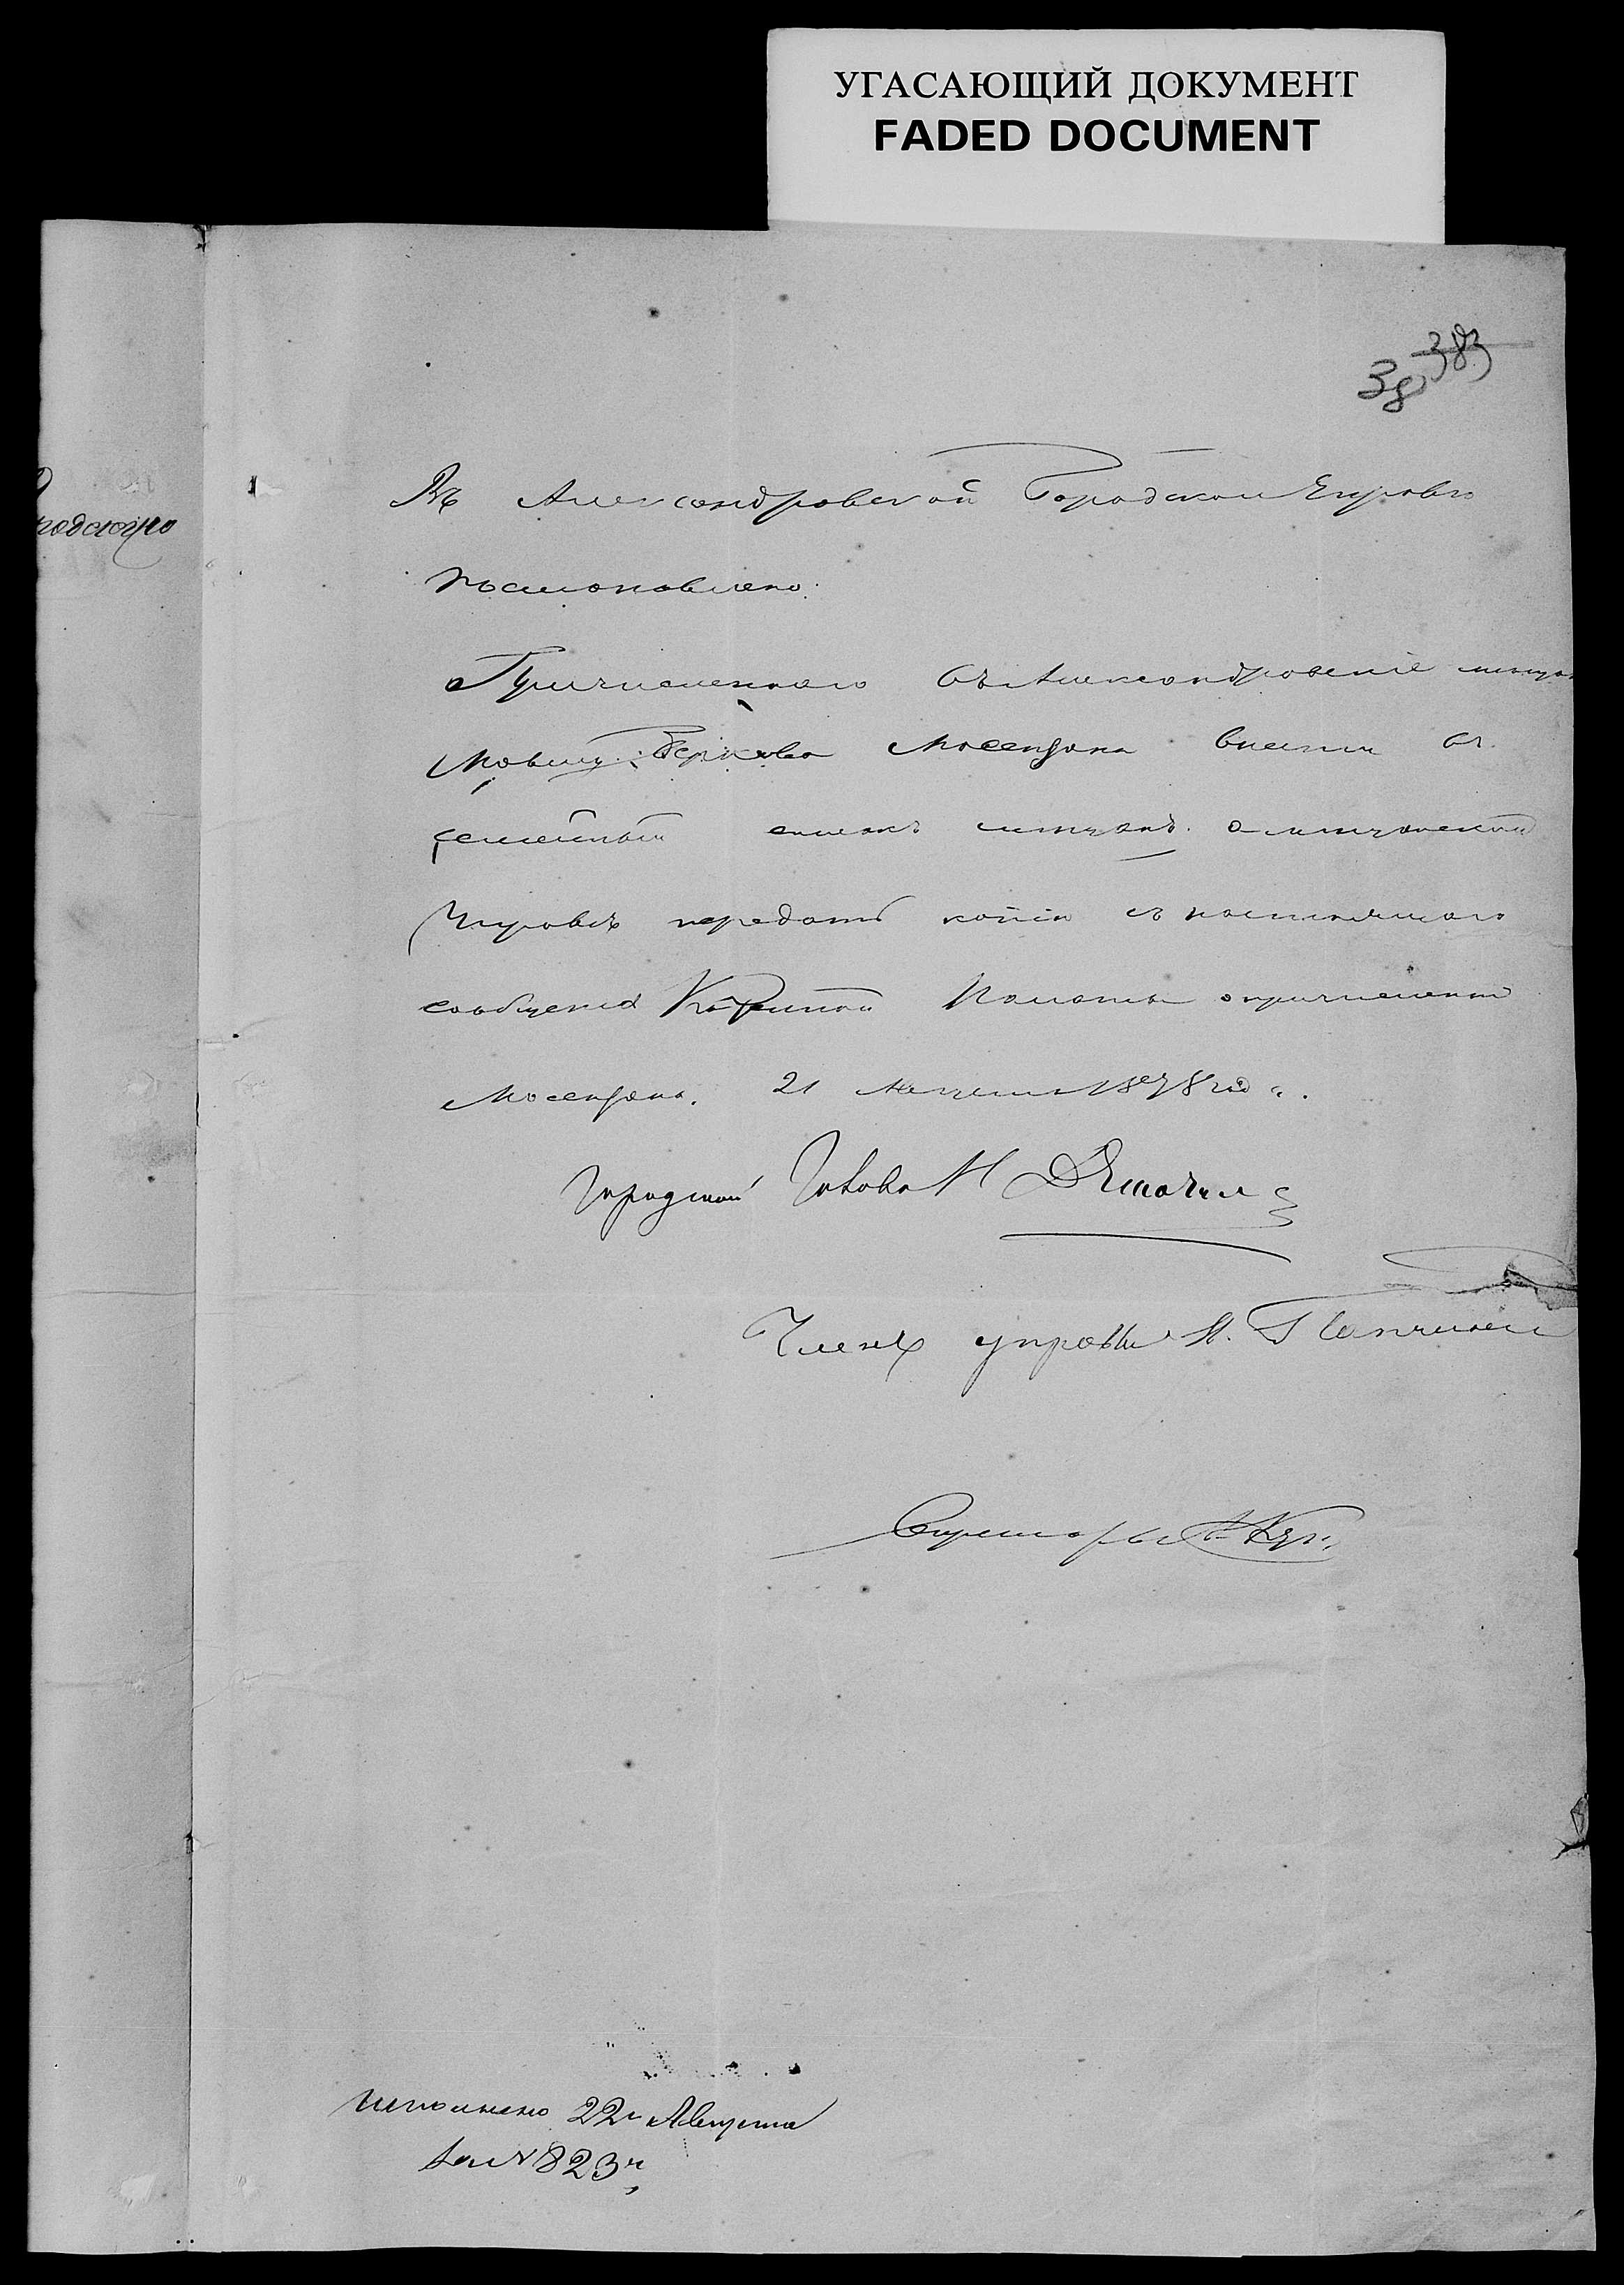 УГАСАЮЩИЙ ДОКУМЕНТ
FADED DOCUMENT
383
родскую
Въ Александровской Городской Управѣ
постановлено:
Причисленнаго въ Александровскіе
Мовшу Беркова внести въ
семейный списокъ мѣщанъ, а мѣщанской
Управѣ передать копію съ настоящаго
сообщенія Казенной Палаты о причисленіи
21 Августа 1878 года.
Городской Голова Н
Членъ управы
Секретарь
Исполнено 22 Августа
за № 823